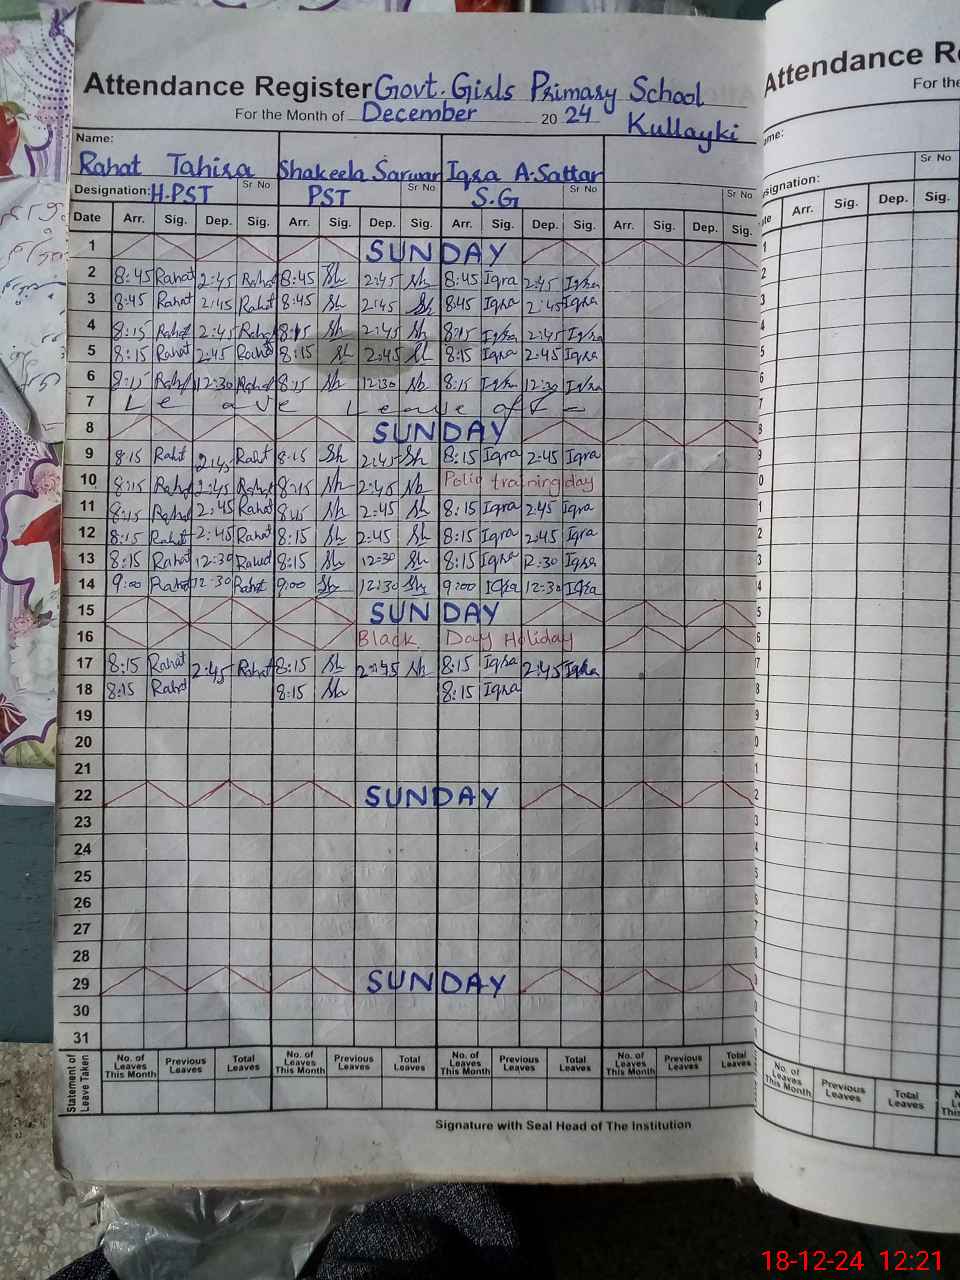 Attendance Register Govt. Girls Primary School
For the Month of December 2024 Kullayki
Name:
Rahat Tahira Shakeela Sarwar Iqra A.Sattar
Designation: H.PST Sr No PST Sr No S.G Sr No Sr No
Date Arr. Sig. Dep. Sig. Arr. Sig. Dep. Sig. Arr. Sig. Dep. Sig. Arr. Sig. Dep. Sig.
1 SUNDAY
2 8:45 Rahat 2:45 Rahat 8:45 Sh 2:45 Sh 8:45 Iqra 2:45 Iqra
3 8:45 Rahat 2:45 Rahat 8:45 Sh 2:45 Sh 8:45 Iqra 2:45 Iqra
4 8:15 Rahat 2:45 Rahat 8:15 Sh 2:45 Sh 8:15 Iqra 2:45 Iqra
5 8:15 Rahat 2:45 Rahat 8:15 Sh 2:45 Sh 8:15 Iqra 2:45 Iqra
6 8:15 Rahat 12:30 Rahat 8:15 Sh 12:30 Sh 8:15 Iqra 12:30 Iqra
7 Leave Leave
8 SUNDAY
9 8:15 Rahat 2:45 Rahat 8:15 Sh 2:45 Sh 8:15 Iqra 2:45 Iqra
10 8:15 Rahat 2:45 Rahat 8:15 Sh 2:45 Sh Polio training day
11 8:15 Rahat 2:45 Rahat Sh 2:45 Sh 8:15 Iqra 2:45 Iqra
12 8:15 Rahat 2:45 Rahat 8:15 Sh 2:45 Sh 8:15 Iqra 2:45 Iqra
13 8:15 Rahat 12:30 Rahat 8:15 Sh 12:30 Sh 8:15 Iqra 12:30 Iqra
14 9:00 Rahat 12:30 Rahat 9:00 Sh 12:30 Sh 9:00 Iqra 12:30 Iqra
15 SUNDAY
16 Black Day Holiday
17 8:15 Rahat 2:45 Rahat 8:15 Sh 2:45 Sh 8:15 Iqra 2:45 Iqra
18 8:15 Rahat 8:15 Sh 8:15 Iqra
19
20
21
22 SUNDAY
23
24
25
26
27
28
29 SUNDAY
30
31
Statement of Leave Taken
No. of Leaves This Month Previous Leaves Total Leaves No. of Leaves This Month Previous Leaves Total Leaves No. of Leaves This Month Previous Leaves Total Leaves No. of Leaves This Month Previous Leaves Total Leaves
Signature with Seal Head of The Institution
Attendance
For the
Sr No
Arr. Sig. Dep. Sig.
No. of Leaves This Month Previous Leaves Total Leaves
18-12-24 12:21